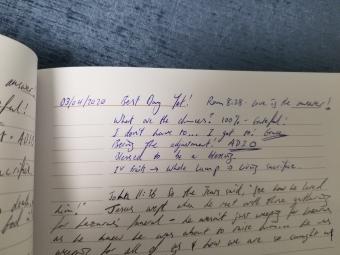 answer
03/04/2020 Best Day Yet! Rom 8:28 - Love is the answer!
What are the chances? 100% - Grateful!
I don't have to... I get to! Grace
Being the adjustment. ADIO
Blessed to be a blessing
→ whole lump → living sacrifice...
John 11:36 So the Jews said, "See how he loved
him!" Jesus wept when he met with those gathering
for Lazarus' funeral - he wasn't just weeping for Lazarus
as he knew he was about to raise him... he was
weeping for all of us & how we are so caught up